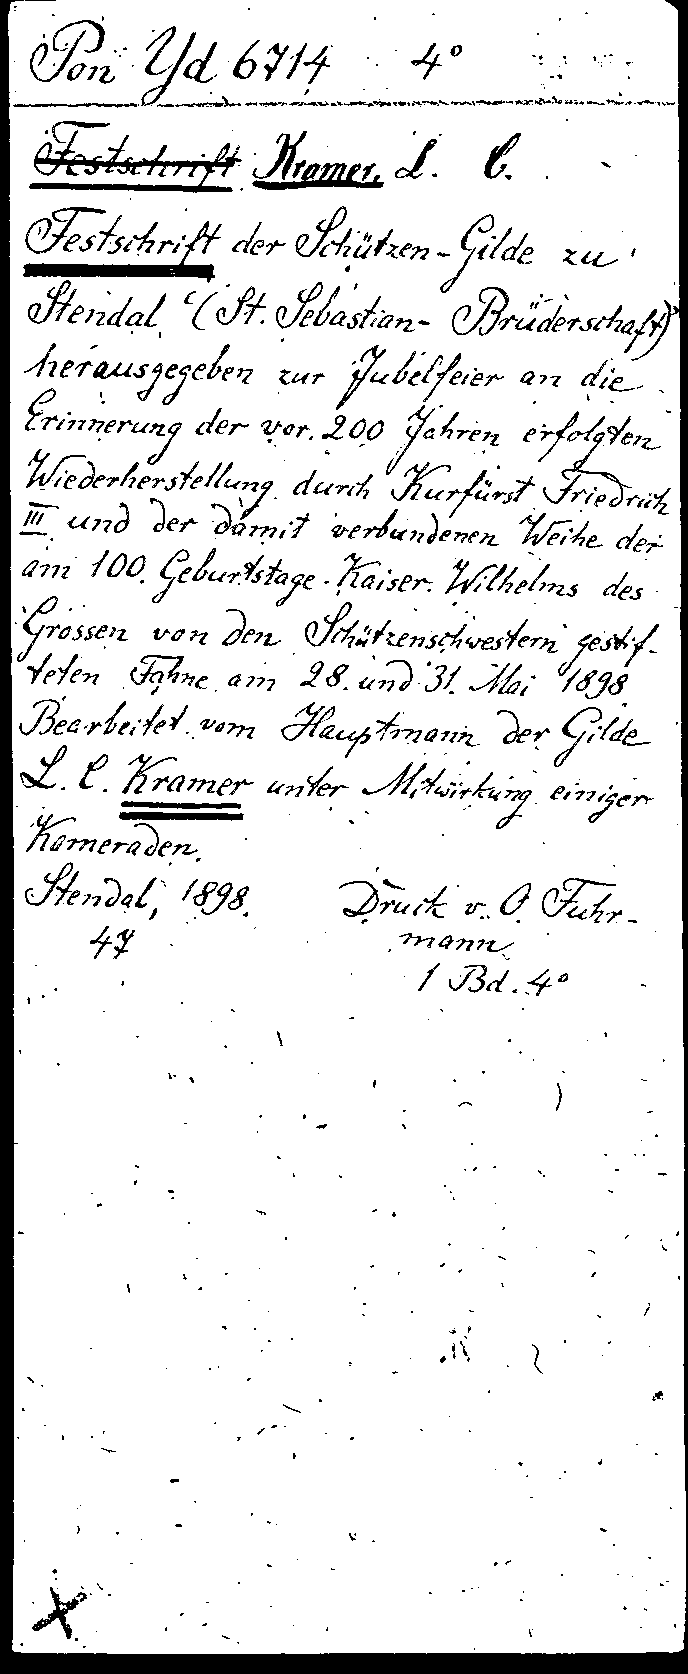 Pon Yd 6714 4°
Festschrift Kramer, L. C.
Festschrift der Schützen-Gilde zu
Stendal (St. Sebastian- Brüderschaft)
herausgegeben zur Jubelfeier an die
Erinnerung der vor 200 Jahren erfolgten
Wiederherstellung durch Kurfürst Friedrich
III und der damit verbundenen Weihe der
am 100. Geburtstage Kaiser Wilhelms des
Grossen von den Schützenschwestern gestif-
teten Fahne am 28. und 31. Mai 1898
Bearbeitet vom Hauptmann der Gilde
L. C. Kramer unter Mitwirkung einiger
Kameraden.
Stendal, 1898. Druck v. O. Fuhr-
47 mann
1 Bd. 4°